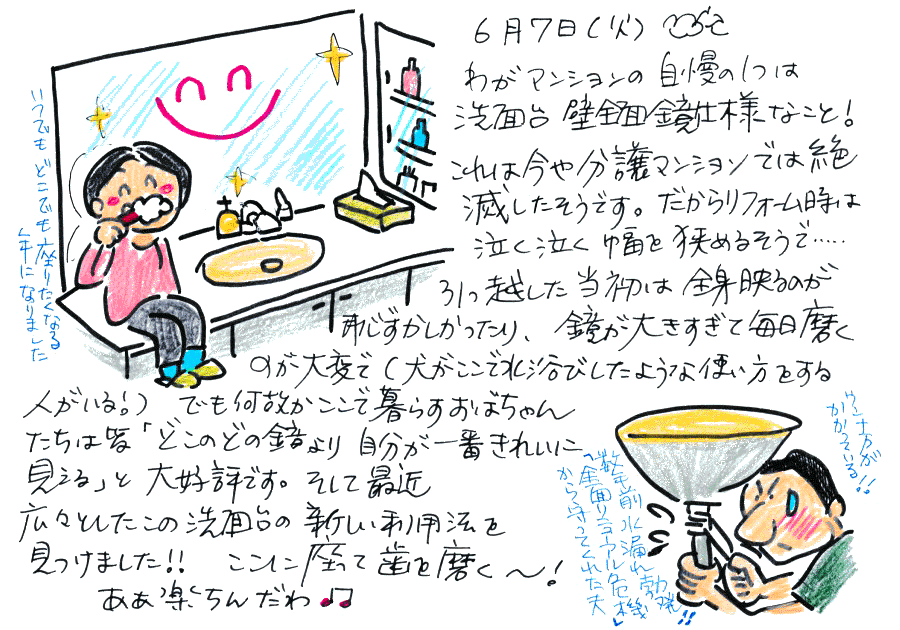 6月7日(火)
わがマンションの自慢の1つは
洗面台壁全面鏡仕様なこと!
これは今や分譲マンションでは絶
滅したそうです。だからリフォーム時は
泣く泣く幅を狭めるそうで.....
引っ越した当初は全身映るのが
恥ずかしかったり、鏡が大きすぎて毎日磨く
のが大変で(犬がここで水浴びしたような使い方をする
人がいる!) でも何故かここで暮らすおばちゃん
たちは皆「どこのどの鏡より自分が一番きれいに
見える」と大好評です。そして最近
広々としたこの洗面台の新しい利用法を
見つけました!! ここに座って歯を磨く〜!
あぁ楽ちんだわ♫
いつでもどこでも座りたくなる
年になりました
数年前水漏れ勃発!!
「全面リニューアル危機」
から守ってくれた夫
万が
かかっている!!